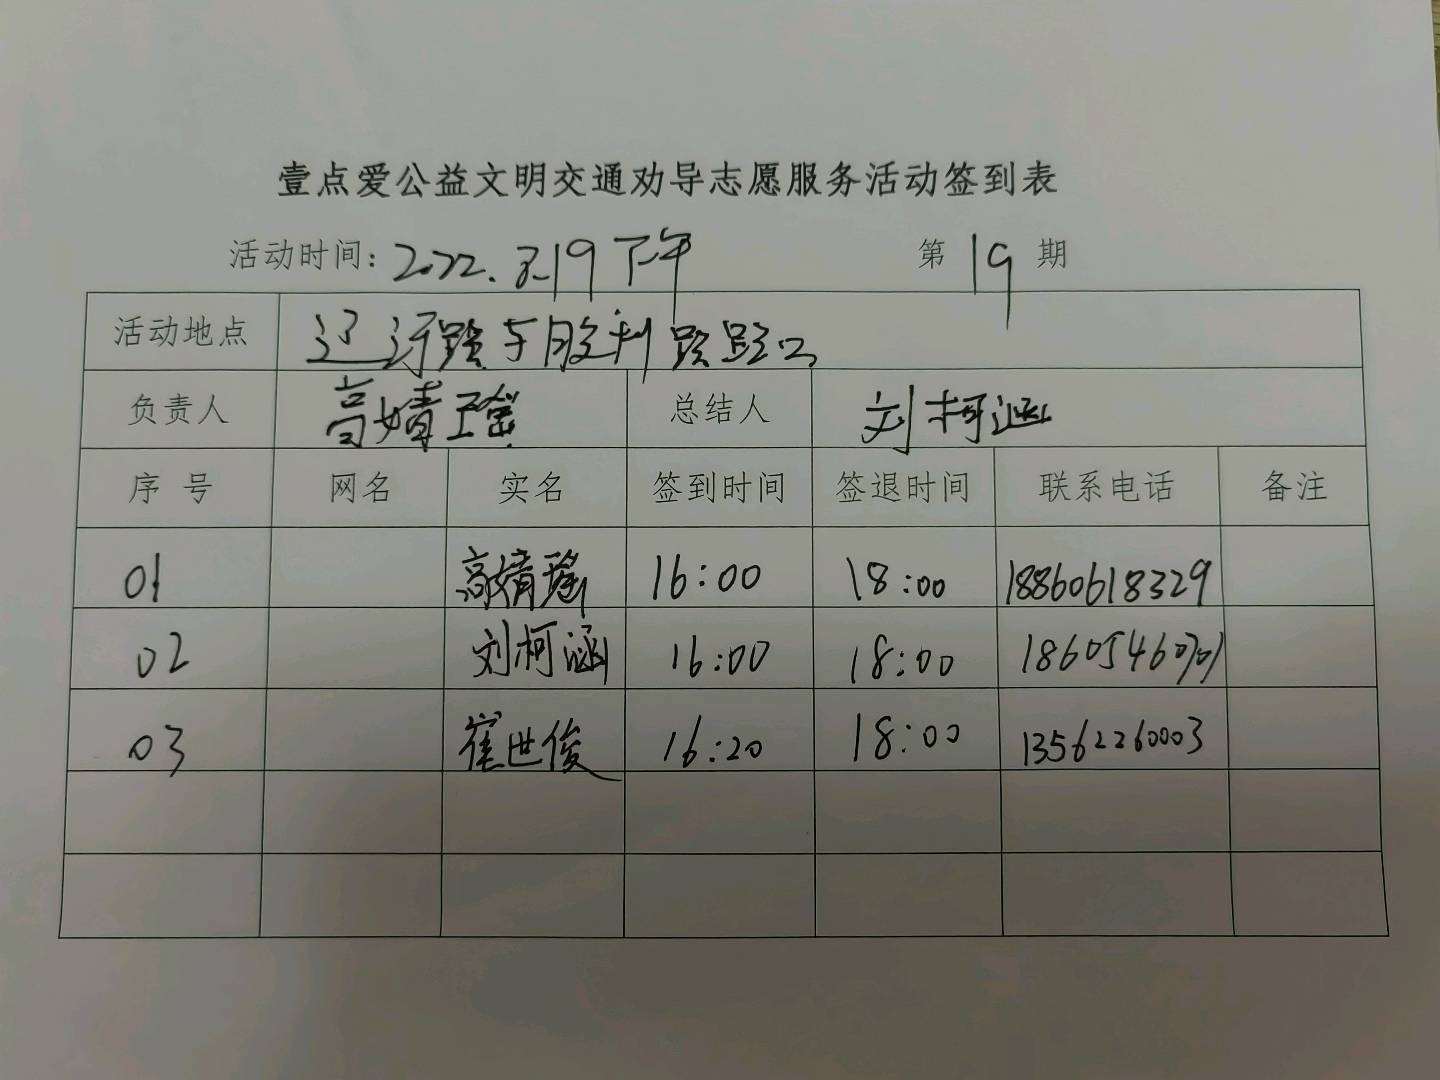 壹点爱公益文明交通劝导志愿服务活动签到表
活动时间: 2022.3.19下午 第 19 期
活动地点 辽河路与胜利路路口
负责人 高婧瑶 总结人 刘柯涵
序 号 网名 实名 签到时间 签退时间 联系电话 备注
01 高婧瑶 16:00 18:00 18860618329
02 刘柯涵 16:00 18:00
03 崔世俊 16:20 18:00 13562260003